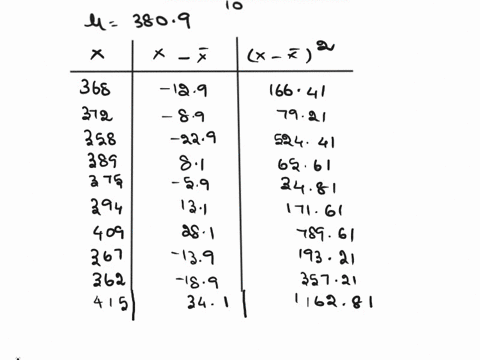 10
μ = 380.9
x x - x̄ (x - x̄)²
368 -12.9 166.41
372 -8.9 79.21
358 -22.9 524.41
389 8.1 65.61
375 -5.9 34.81
394 13.1 171.61
409 28.1 789.61
367 -13.9 193.21
362 -18.9 357.21
415 34.1 1162.81